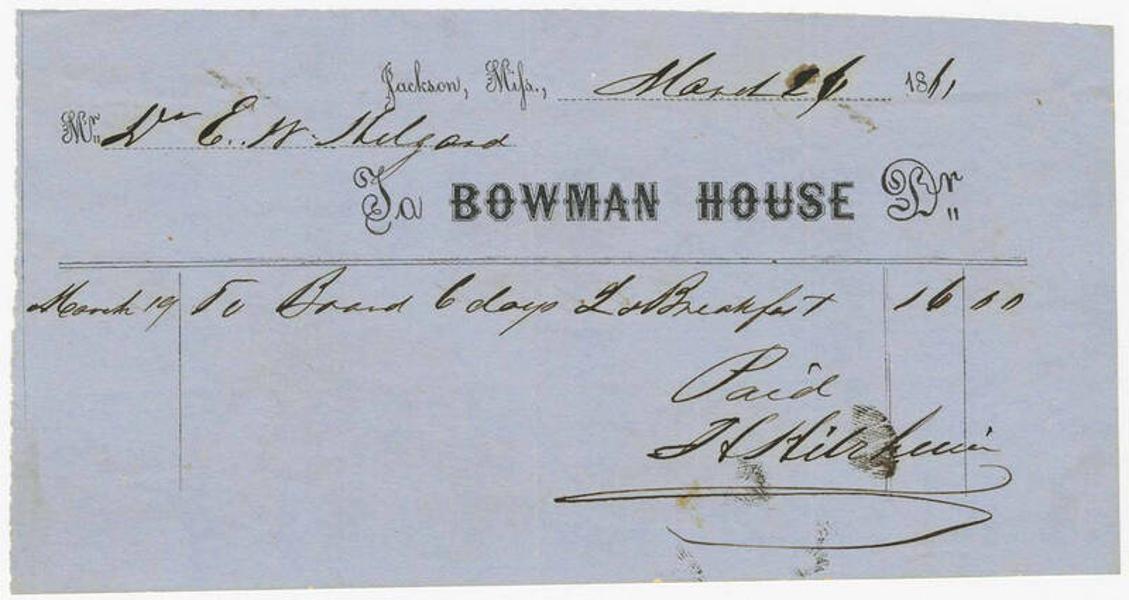 Jackson, Miss., March 26 1861
Mr. Dr E. W. Hilgard
To BOWMAN HOUSE Dr.
March 19 To Board 6 days & Breakfast 16 00
Paid